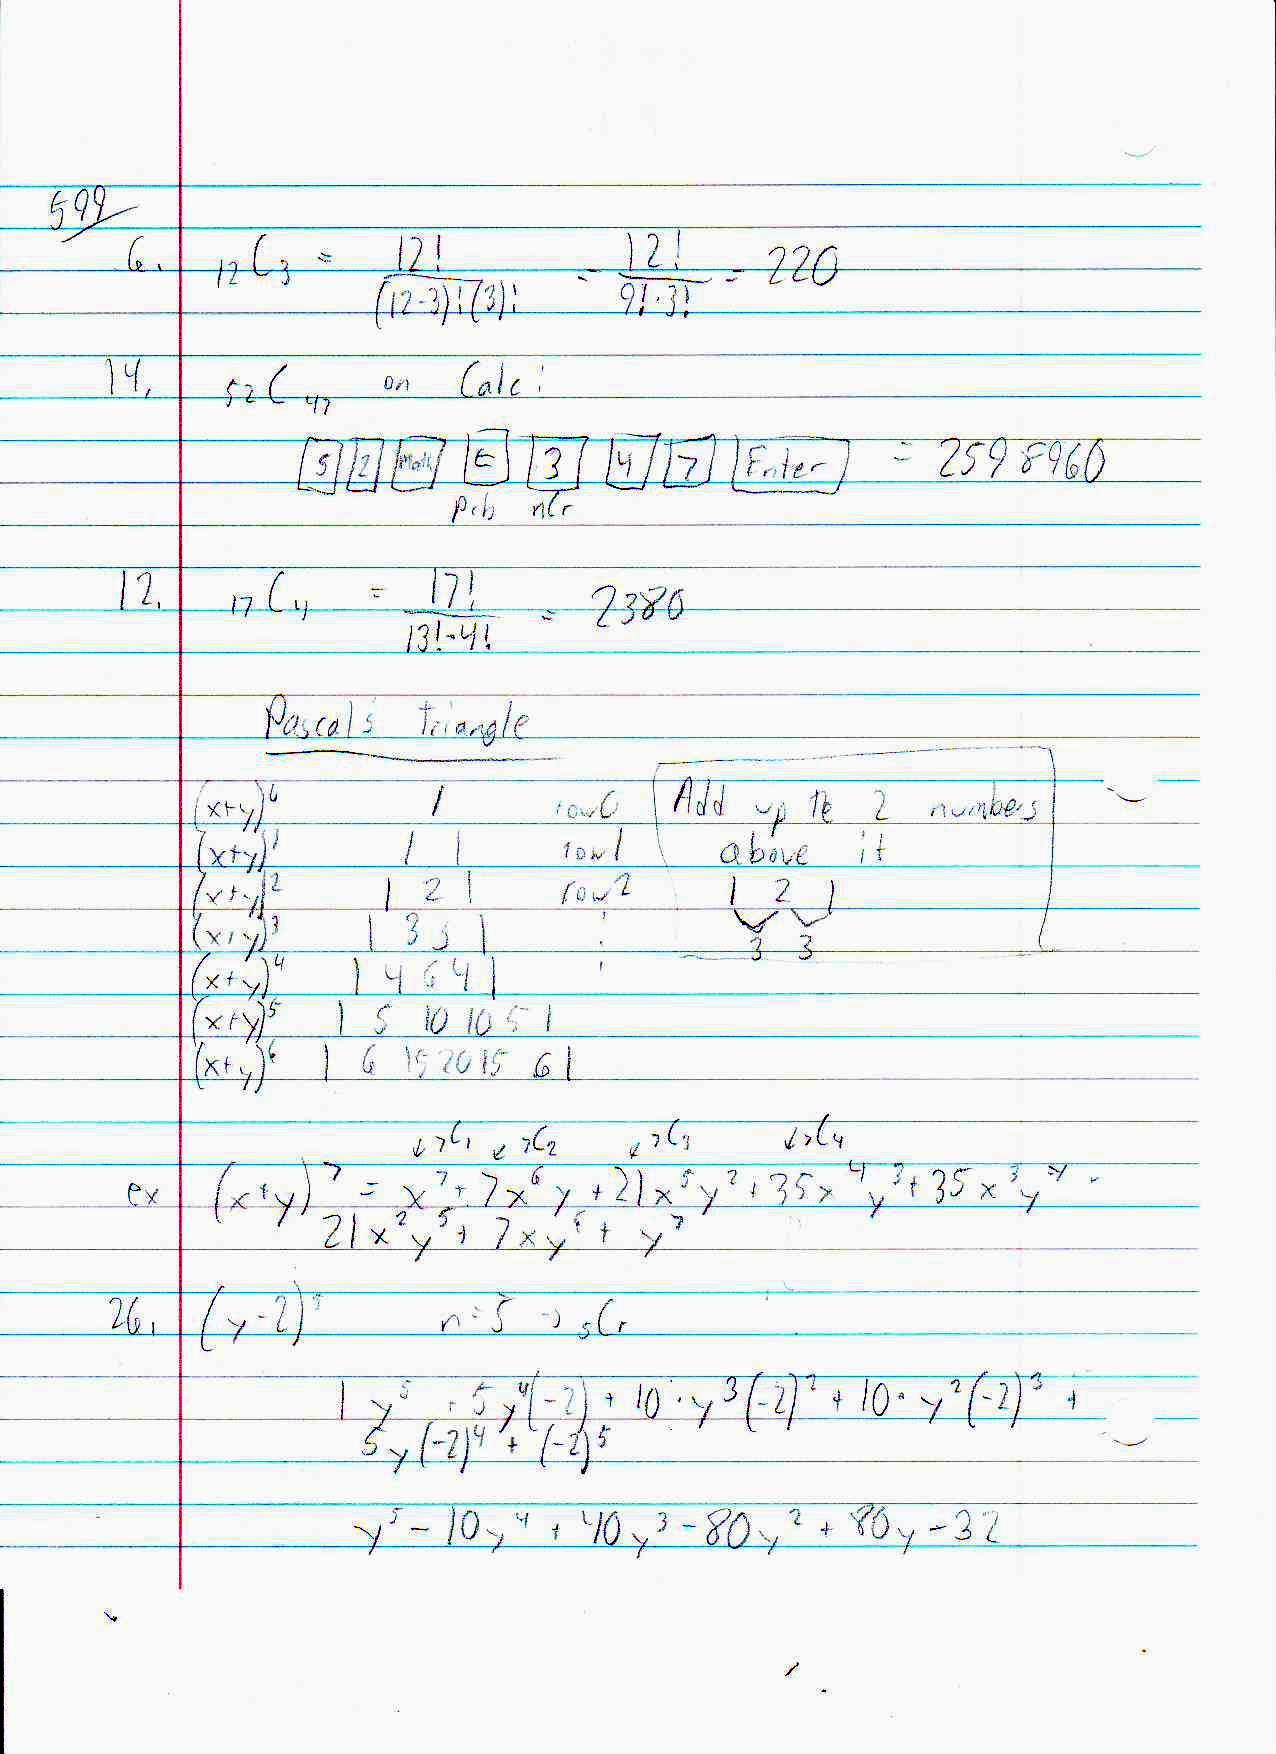 599
6. ₁₂C₃ = 12! / (12-3)!(3)! = 12! / 9!·3! = 220
14. ₅₂C₄₇ on Calc:
5 2 Math ← 3 4 7 Enter = 2598960
prb nCr
12. ₁₇C₄ = 17! / 13!·4! = 2380
Pascal's triangle
(x+y)⁰ 1 row 0
(x+y)¹ 1 1 row 1
(x+y)² 1 2 1 row 2
(x+y)³ 1 3 3 1 :
(x+y)⁴ 1 4 6 4 1
(x+y)⁵ 1 5 10 10 5 1
(x+y)⁶ 1 6 15 20 15 6 1
Add up the 2 numbers
above it
1 2 1
3 3
↙₇C₁ ↙₇C₂ ↙₇C₃ ↙₇C₄
ex (x+y)⁷ = x⁷ + 7x⁶y + 21x⁵y² + 35x⁴y³ + 35x³y⁴ +
21x²y⁵ + 7xy⁶ + y⁷
26. (y-2)⁵ n=5 → ₅Cr
1 y⁵ + 5y⁴(-2) + 10·y³(-2)² + 10·y²(-2)³ +
5y(-2)⁴ + (-2)⁵
y⁵ - 10y⁴ + 40y³ - 80y² + 80y - 32